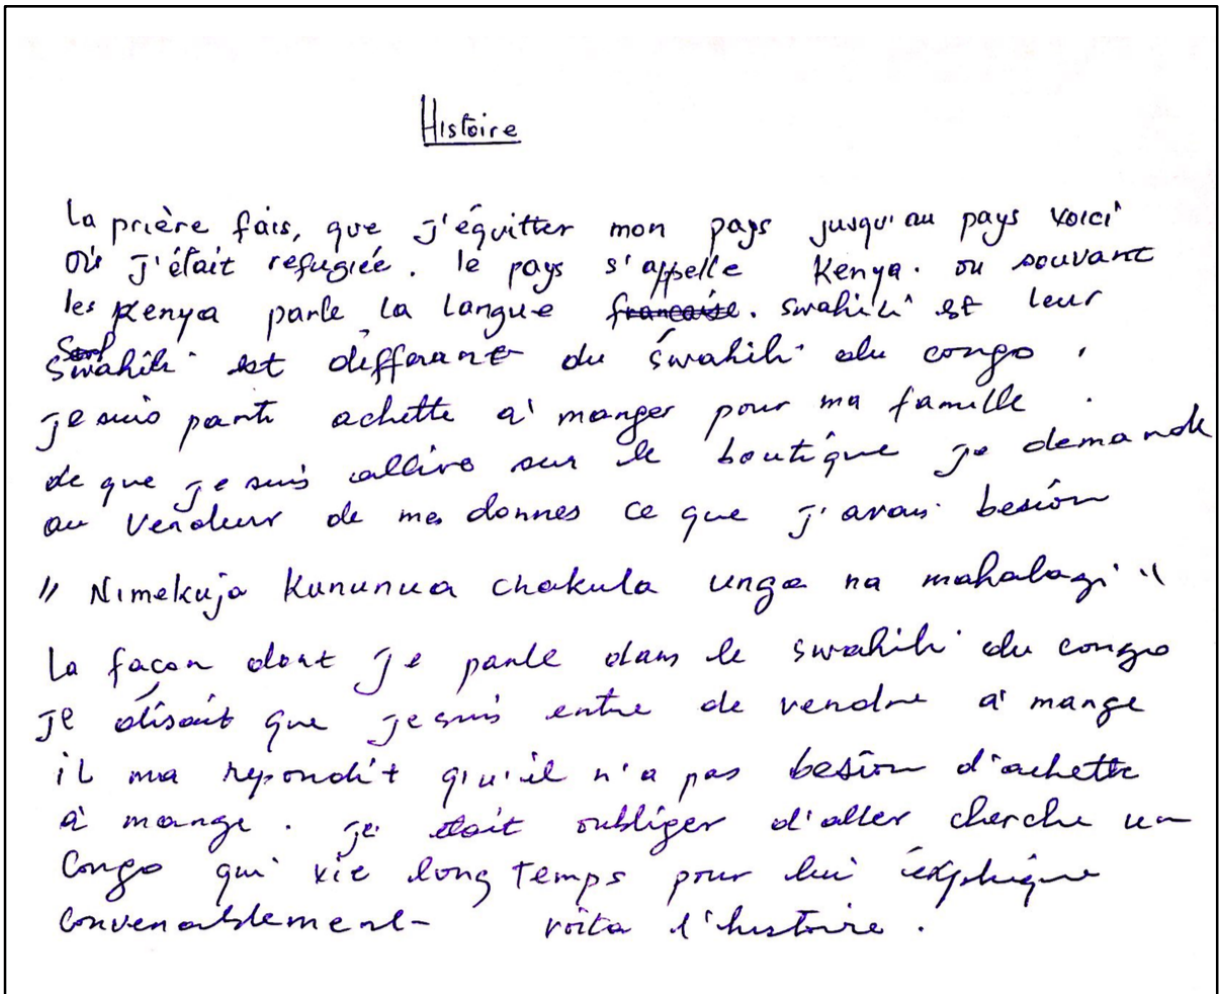 Histoire
La prière fais, que j'équitter mon pays jusqu'au pays voici
où j'était refugiée. le pays s'appelle Kenya. ou souvant
les Kenya parle la langue française. swahili est leur
swahili est différant du swahili du congo.
je suis parti achette à manger pour ma famille.
de que je suis allivé sur le boutique je demande
au vendeur de me donnes ce que j'avais besion
" Nimekuja Kununua chakula unga na mahalagi "
La façon dont je parle dans le swahili du congo
je disait que je suis entre de vendre à mange
il ma repondit qu'il n'a pas besion d'achette
à mange. je était oubliger d'aller cherche un
Congo qui vie long temps pour lui éxplique
convenablement- voila l'histoire.